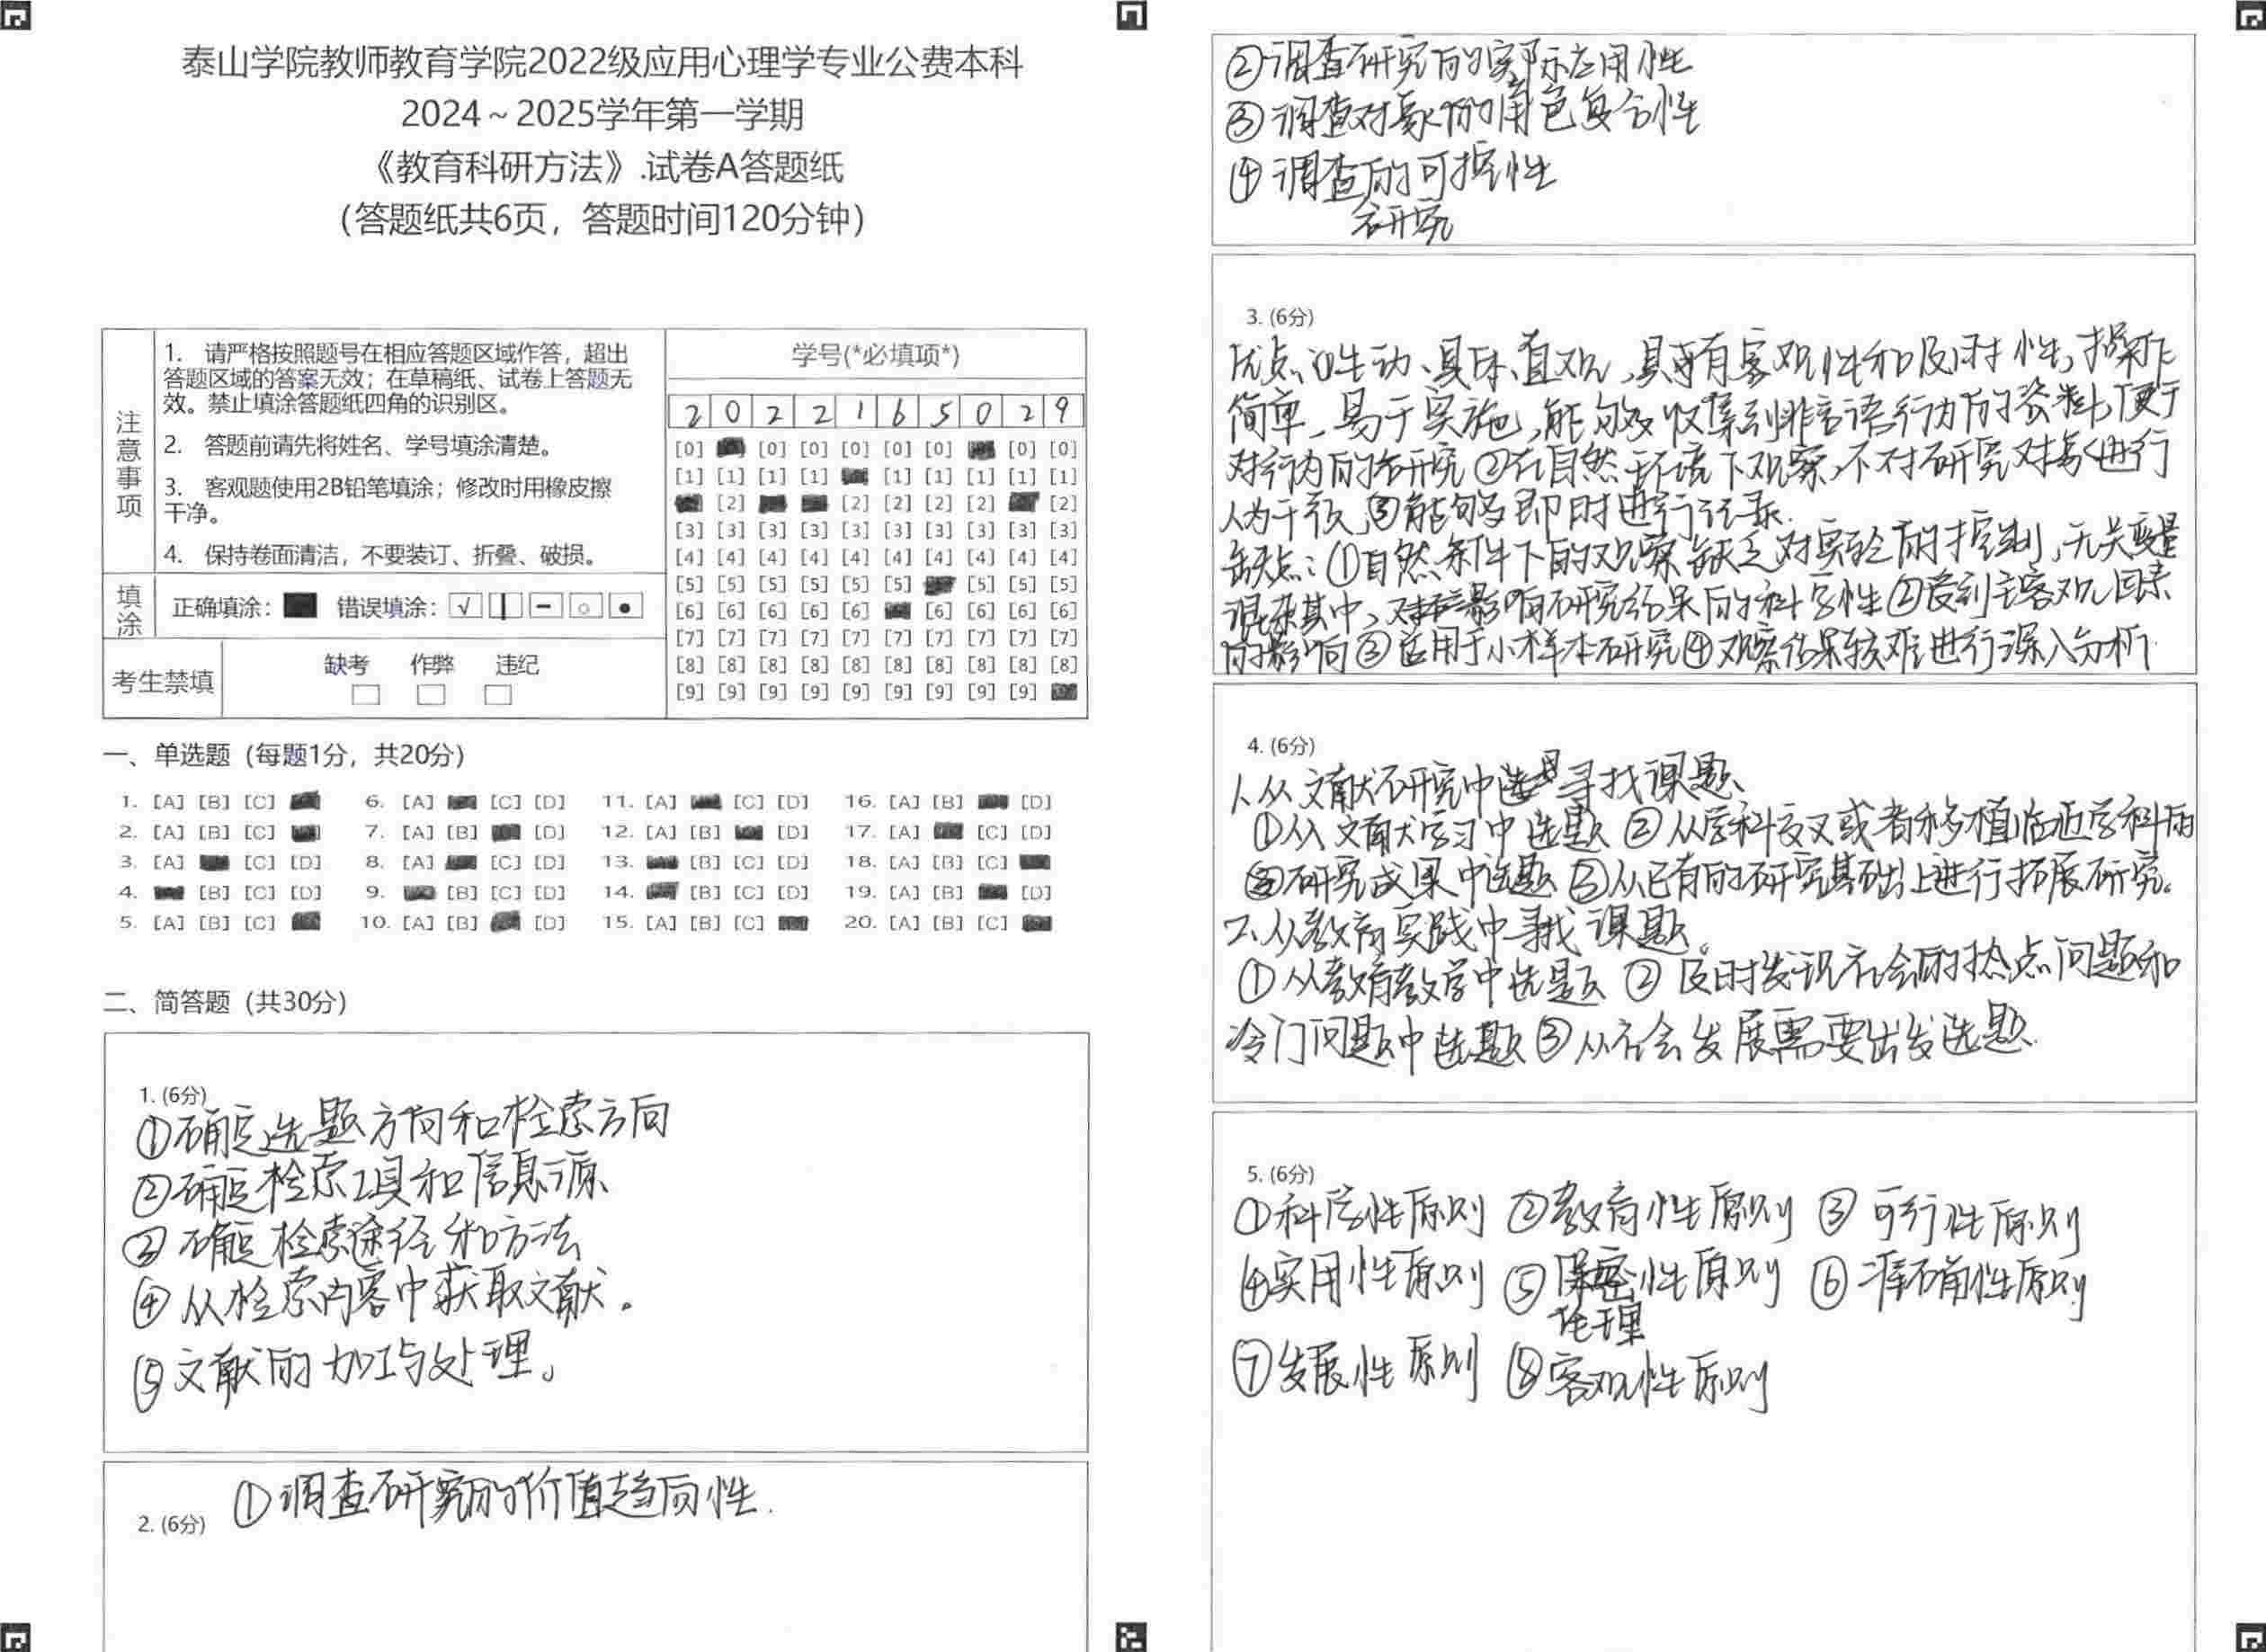 泰山学院教师教育学院2022级应用心理学专业公费本科
2024～2025学年第一学期
《教育科研方法》.试卷A答题纸
（答题纸共6页，答题时间120分钟）
注意事项
1. 请严格按照题号在相应答题区域作答，超出
答题区域的答案无效；在草稿纸、试卷上答题无
效。禁止填涂答题纸四角的识别区。
2. 答题前请先将姓名、学号填涂清楚。
3. 客观题使用2B铅笔填涂；修改时用橡皮擦
干净。
4. 保持卷面清洁，不要装订、折叠、破损。
填涂
正确填涂： 错误填涂：
考生禁填
缺考 作弊 违纪
学号(*必填项*)
2 0 2 2 1 6 5 0 2 9
[0] [0] [0] [0] [0] [0] [0] [0]
[1] [1] [1] [1] [1] [1] [1] [1] [1]
[2] [2] [2] [2] [2] [2]
[3] [3] [3] [3] [3] [3] [3] [3] [3] [3]
[4] [4] [4] [4] [4] [4] [4] [4] [4] [4]
[5] [5] [5] [5] [5] [5] [5] [5] [5]
[6] [6] [6] [6] [6] [6] [6] [6] [6]
[7] [7] [7] [7] [7] [7] [7] [7] [7] [7]
[8] [8] [8] [8] [8] [8] [8] [8] [8] [8]
[9] [9] [9] [9] [9] [9] [9] [9] [9]
一、单选题（每题1分，共20分）
1. [A] [B] [C] 6. [A] [C] [D] 11. [A] [C] [D] 16. [A] [B] [D]
2. [A] [B] [C] 7. [A] [B] [D] 12. [A] [B] [D] 17. [A] [C] [D]
3. [A] [C] [D] 8. [A] [C] [D] 13. [B] [C] [D] 18. [A] [B] [C]
4. [B] [C] [D] 9. [B] [C] [D] 14. [B] [C] [D] 19. [A] [B] [D]
5. [A] [B] [C] 10. [A] [B] [D] 15. [A] [B] [C] 20. [A] [B] [C]
二、简答题（共30分）
1. (6分)
①确定选题方向和检索方向
②确定检索工具和信息源
③确定检索途径和方法
④从检索内容中获取文献。
⑤文献的加工与处理。
2. (6分)
①调查研究的价值趋向性.
②调查研究的实际应用性
③调查对象的角色复合性
④调查的可控性
研究
3. (6分)
优点①生动、具体、直观,具有客观性和及时性,操作
简单、易于实施,能够收集到非言语行为的资料,便于
对行为的研究②在自然环境下观察,不对研究对象进行
人为干预③能够即时进行记录.
缺点:①自然条件下的观察缺乏对实验的控制,无关变量
混杂其中,影响研究结果的科学性②受到主客观因素
的影响③适用于小样本研究④观察结果较难进行深入分析.
4. (6分)
1.从文献研究中寻找课题
①从文献学习中选题②从学科交叉或者移植临近学科的
研究成果中选题③从已有的研究基础上进行拓展研究。
2.从教育实践中寻找课题。
①从教育教学中选题②及时发现社会的热点问题和
冷门问题中选题③从社会发展需要出发选题.
5. (6分)
①科学性原则②教育性原则③可行性原则
④实用性原则⑤性原则⑥准确性原则
伦理
⑦发展性原则⑧客观性原则